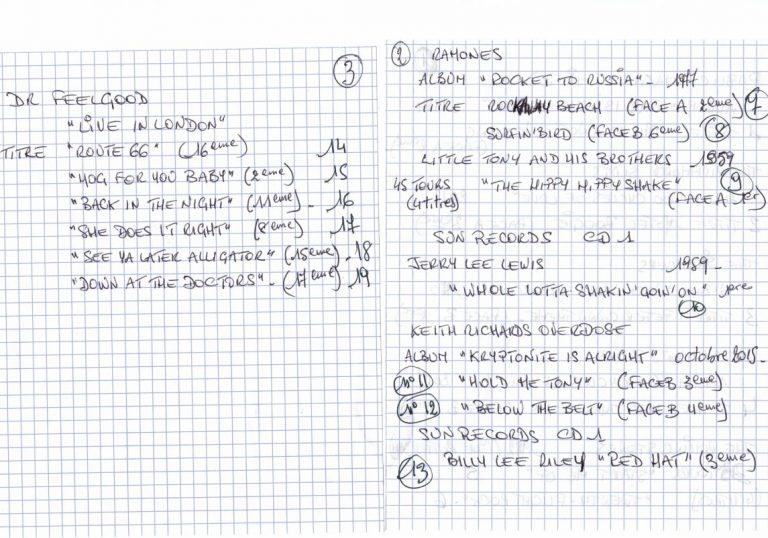 3
DR FEELGOOD
"LIVE IN LONDON"
TITRE "ROUTE 66" (16eme) 14
"HOG FOR YOU BABY" (2eme) 15
"BACK IN THE NIGHT" (11eme) - 16
"SHE DOES IT RIGHT" (8eme) 17
"SEE YA LATER ALLIGATOR" (15eme) - 18
"DOWN AT THE DOCTORS" - (17eme) 19
2 RAMONES
ALBUM "ROCKET TO RUSSIA" - 1977
TITRE ROCKAWAY BEACH (FACE A 2eme) 7
SURFIN'BIRD (FACE B 6eme) 8
LITTLE TONY AND HIS BROTHERS - 1959
45 TOURS "THE HIPPY HIPPY SHAKE" 9
(4 titres) (FACE A 1er)
SUN RECORDS CD 1
JERRY LEE LEWIS 1989 -
"WHOLE LOTTA SHAKIN'GOIN'ON" 1ere
10
KEITH RICHARDS OVERDOSE
ALBUM "KRYPTONITE IS ALRIGHT" octobre 2015 -
N° 11 "HOLD ME TONY" (FACE B 3eme)
N° 12 "BELOW THE BELT" (FACE B 4eme)
SUN RECORDS CD 1
13 BILLY LEE RILEY "RED HAT" (3eme)